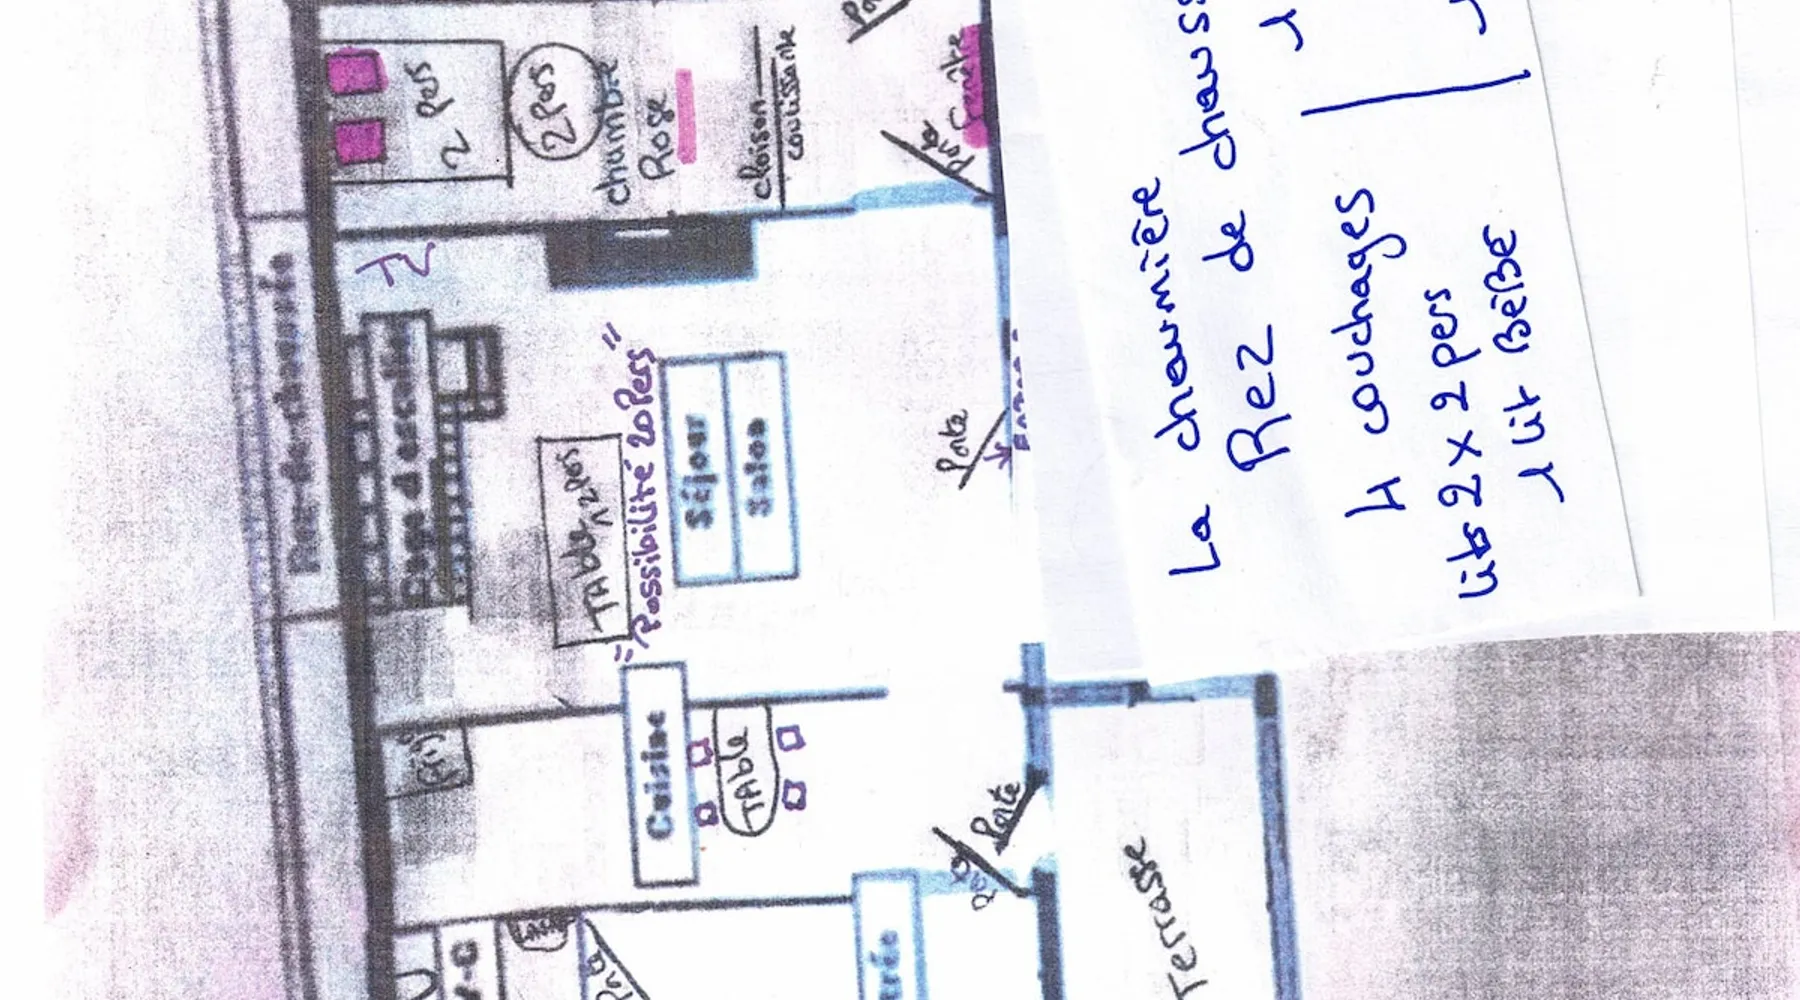 La chaumière
Rez de chauss
4 couchages
lits 2 x 2 pers
1 lit BéBé
Rez-de-chaussée
2 pers
2 pers
chambre
Rose
cloison
coulissante
Porte
Fenêtre
Cage d'escalier
TABle 12 pers
"Possibilité 20 Pers"
Séjour
Salon
Porte
Cuisine
TABle
Frigo
Porte
Porte
Terrasse
Porte